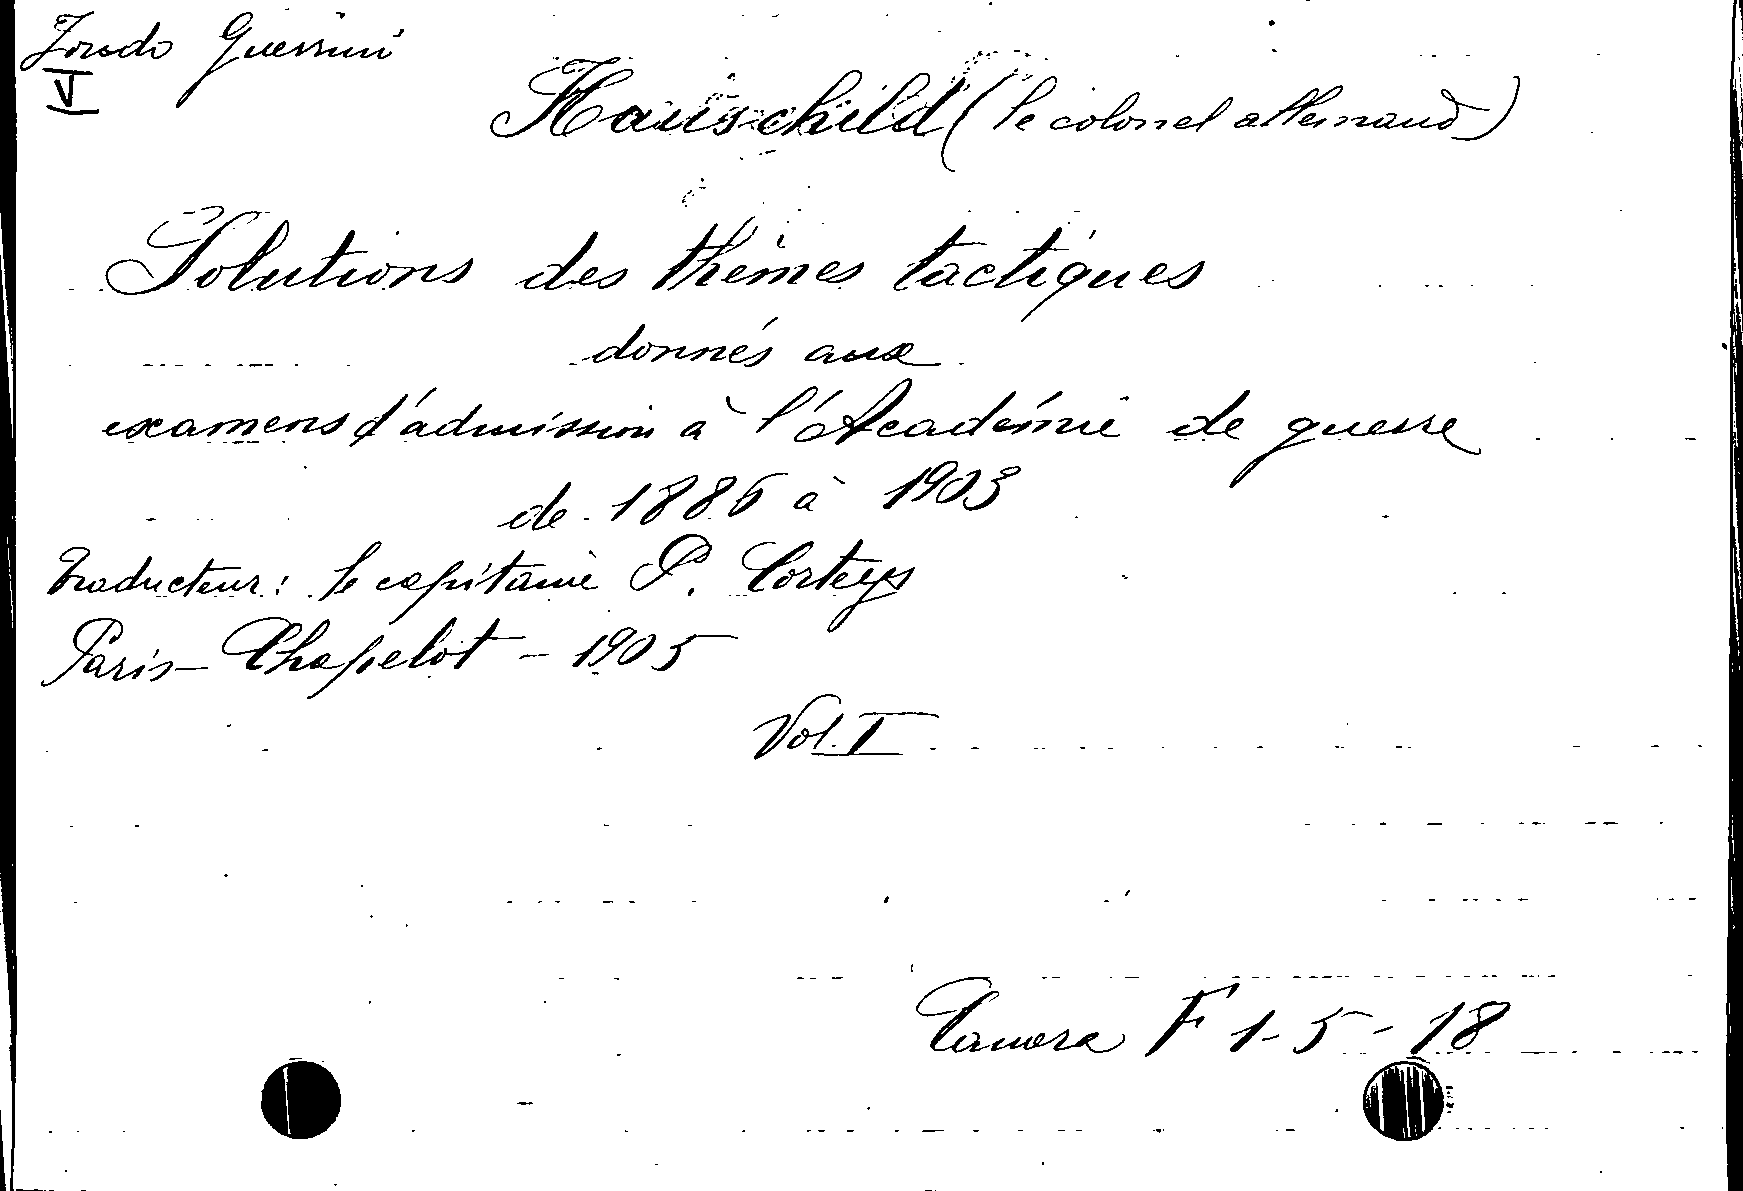 Fondo Guerrini
V
Hauschild (le colonel allemand)
Solutions des thèmes tactiques
donnés aux
examens d'admission à l'Académie de guerre
de 1886 à 1903
Traducteur: le capitaine P. Corteys
Paris - Chapelot - 1905
Vol. I
Camera F 1-5-18